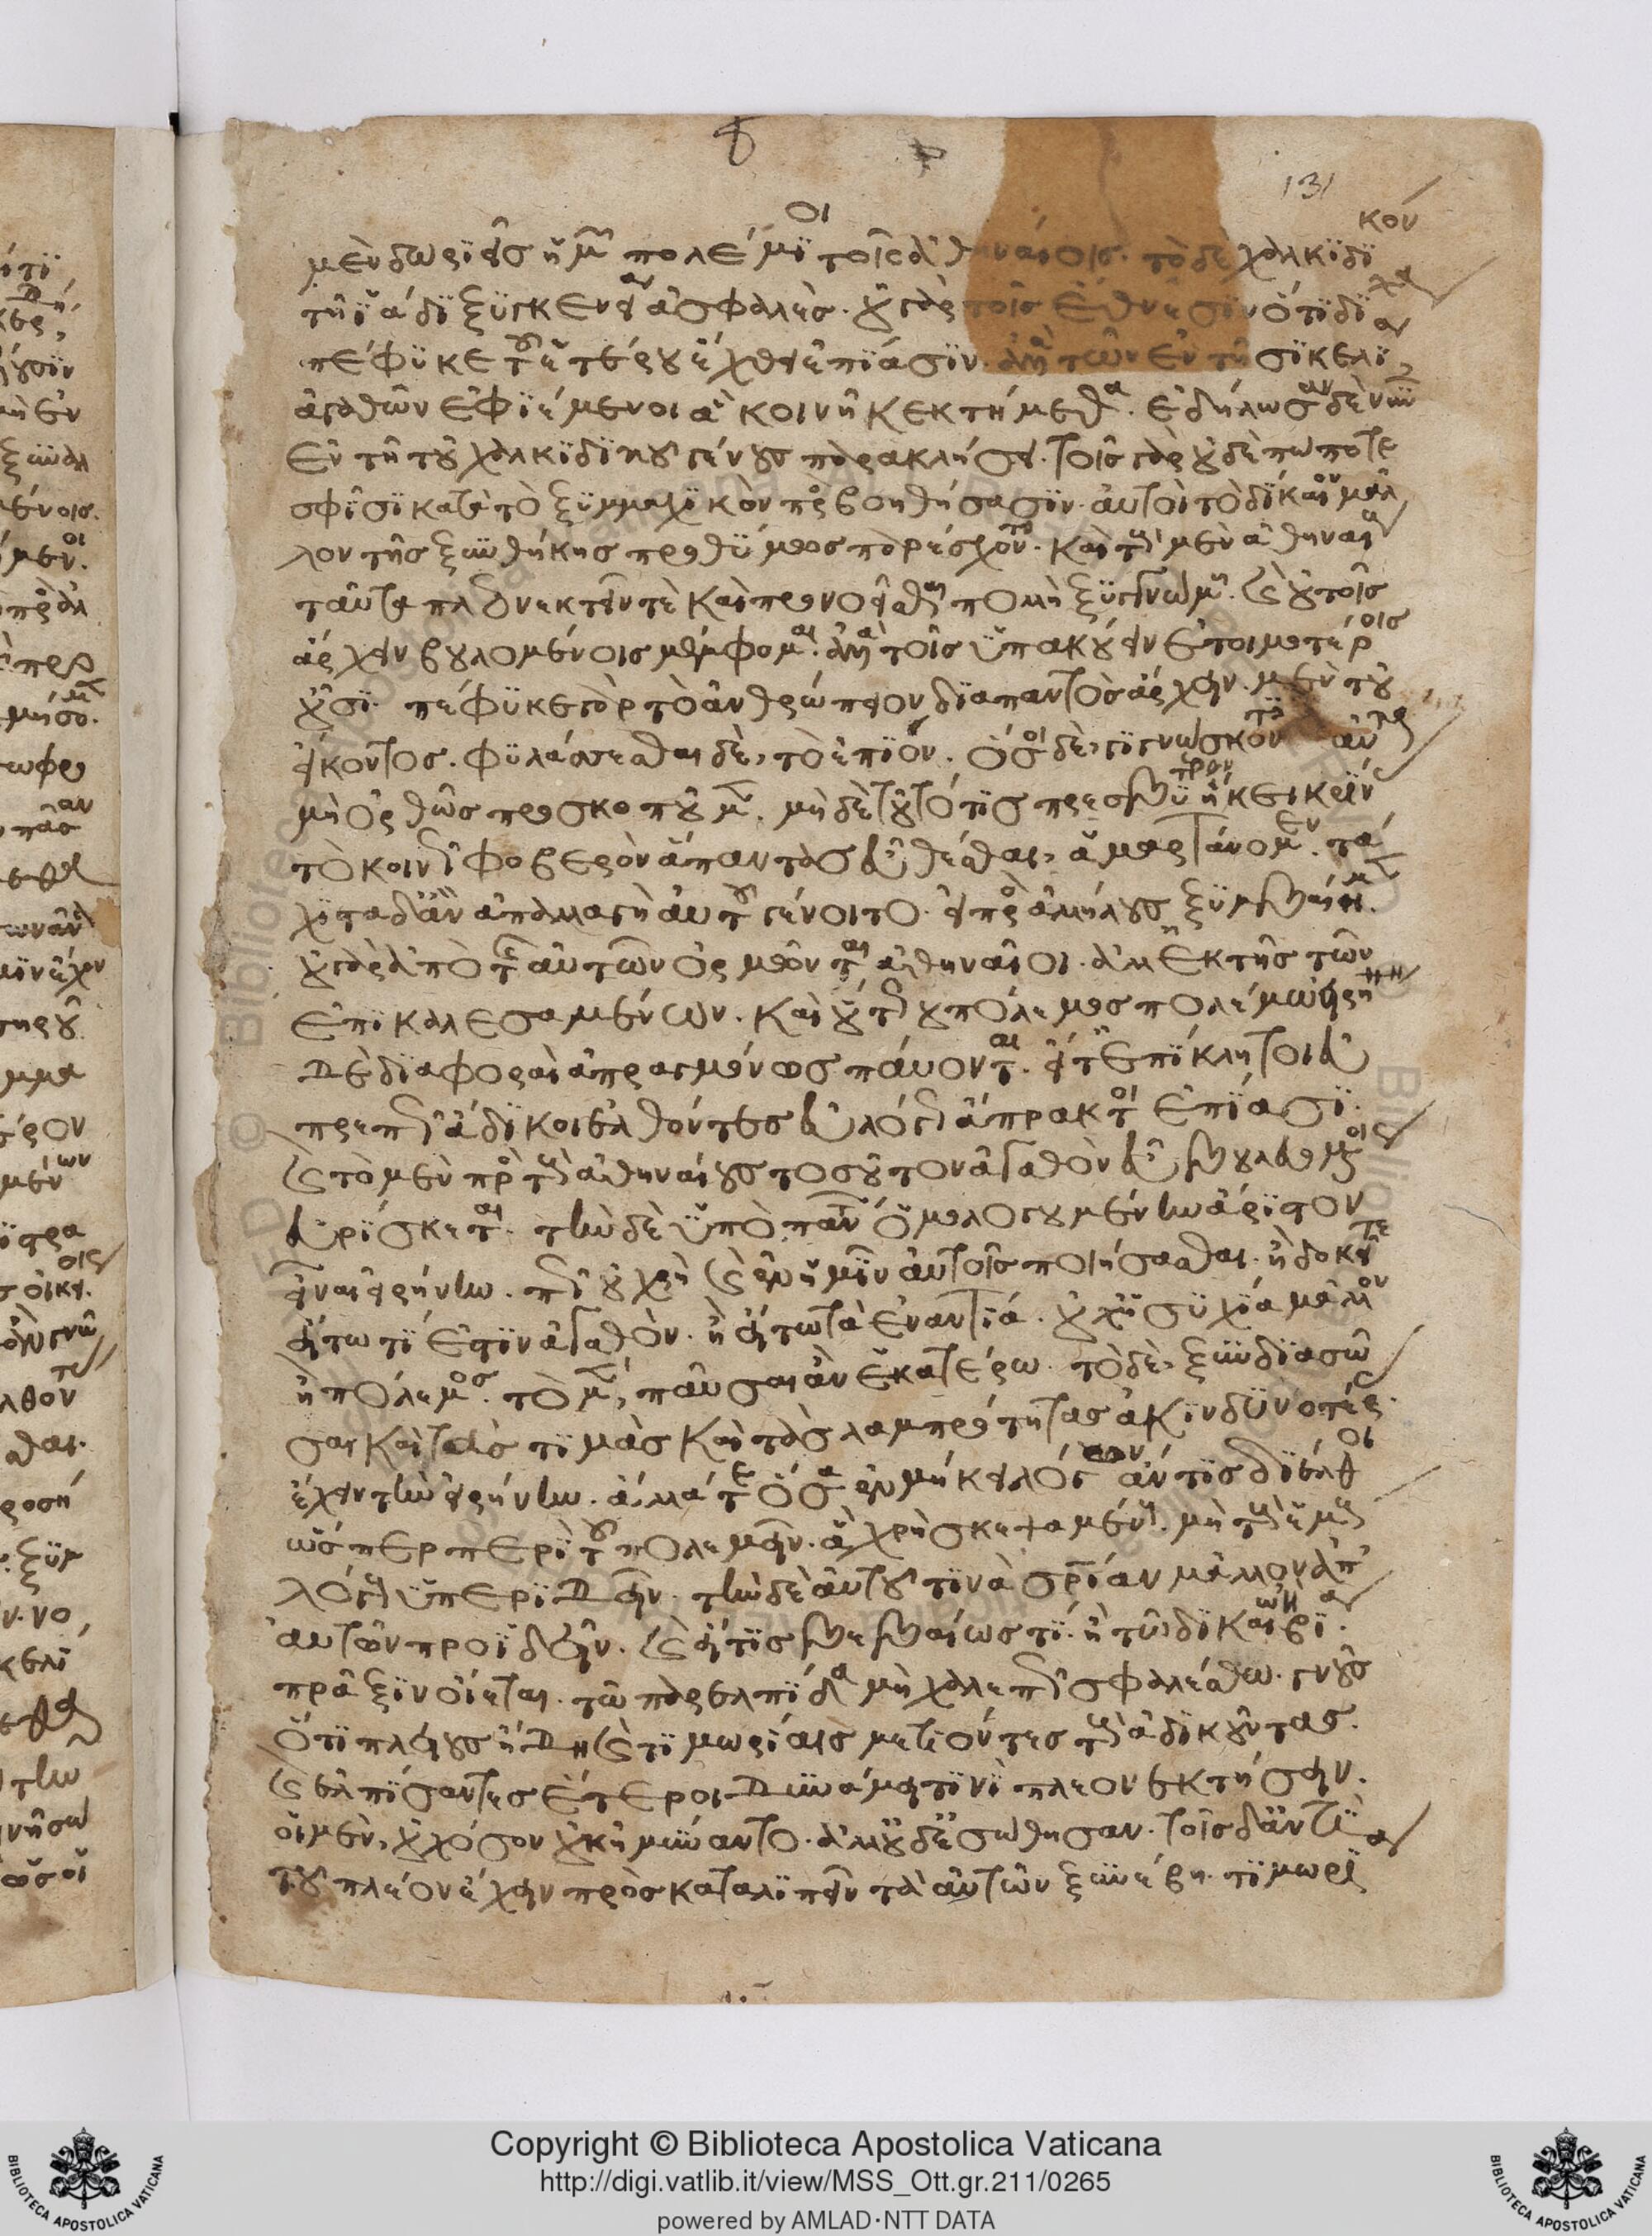 131
μὲν δωριεῖσ ἡμῶν πολέμιοι τοῖς ἀθηναίοις. τὸ δὲ χαλκιδικὸν
τῆ ἰάδι ξυγγενεία ἀσφαλὲσ. οὐ γὰρ τοῖς ἔθνεσιν ὅτι δίχα
πέφυκε τοῦ ἑτέρου ἔχθει ἐπίασιν. ἀλλὰ τῶν ἐν τῆ σικελία
ἀγαθῶν ἐφιέμενοι ἃ κοινῆ κεκτήμεθα. ἐδήλωσαν δὲ νῦν
ἐν τῆ τοῦ χαλκιδικοῦ γένους παρακλήσει. τοῖς γὰρ οὐδὲ πώποτε
σφίσι κατὰ τὸ ξυμμαχικὸν προσβοηθήσασιν. αὐτοὶ τὸ δίκαιον μᾶλ
λον τῆς ξυνθήκης προθύμως παρέσχοντο. καὶ τοὺς μὲν ἀθηναίους
ταῦτα πλεονεκτεῖν τὲ καὶ προνοεῖσθαι πολλὴ ξυγγνώμη. καὶ οὐ τοῖς
ἄρχειν βουλομένοις μέμφομαι. ἀλλὰ τοῖς ὑπακούειν ἑτοιμοτέροις
οὖσι. πέφυκε γὰρ τὸ ἀνθρώπειον διαπαντὸς ἄρχειν μὲν τοῦ
εἴκοντος. φυλάσσεσθαι δὲ, τὸ ἐπιόν. ὅσοι δὲ, γιγνώσκοντες αὐτὰ
μὴ ὀρθῶς προσκοποῦμεν. μηδὲ τοῦτό τις πρεσβύτατον ἥκει κρίνας
τὸ κοινῶς φοβερὸν ἅπαντας εὖ θέσθαι, ἁμαρτάνομεν. τά
χιστα δ' ἂν ἀπαλλαγὴ αὐτοῦ γένοιτο. εἰ πρὸς ἀλλήλους ξυμβαῖμεν.
οὐ γὰρ ἀπὸ τῆς αὑτῶν ὁρμῶνται ἀθηναῖοι. ἀλλ' ἐκ τῆς τῶν
ἐπικαλεσαμένων. καὶ οὕτως οὐ πόλεμος πολέμω εἰρήνη
δὲ διαφοραὶ ἀπραγμόνως παύονται. οἵ τ' ἐπίκλητοι εὐ
πρεπῶς ἄδικοι ἐλθόντες εὐλόγως ἄπρακτοι ἐπίασι.
καὶ τὸ μὲν πρὸς τοὺς ἀθηναίους τοσοῦτον ἀγαθὸν εὖ βουλευομένοις
εὑρίσκεται. τὴν δὲ ὑπὸ πάντων ὁμολογουμένην ἄριστον
εἶναι εἰρήνην. πῶς οὐ χρὴ καὶ ἐν ἡμῖν αὐτοῖς ποιήσασθαι. ἢ δοκεῖτε
εἴ τω τὶ ἔστιν ἀγαθὸν. ἢ εἴ τω τὰ ἐναντία. οὐχ ἡσυχία μᾶλλον
ἢ πόλεμος. τὸ μὲν, παῦσαι ἂν ἑκατέρω. τὸ δὲ, ξυνδιασῶ
σαι καὶ τὰς τιμὰς καὶ τὰς λαμπρότητας ἀκινδυνοτέρας
ἔχειν τὴν εἰρήνην. ἄλλα τὲ ὅσα ἐν μήκει λόγων ἄν τις διέλθοι
ὥσπερ περὶ τοῦ πολεμεῖν. ἃ χρὴ σκεψαμένους. μὴ τοὺς ἐμοὺς
λόγους ὑπεριδεῖν. τὴν δὲ αὑτοῦ τινὰ σωτηρίαν μᾶλλον ἀπ'
αὐτῶν προϊδεῖν. καὶ εἴ τις βεβαίως τί. ἢ τῶ δικαίω ἢ βία.
πράξειν οἴεται. τῶ παρ' ἐλπίδα μὴ χαλεπῶς σφαλέσθω. γνοὺς
ὅτι πλείους ἤδη καὶ τιμωρίαις μετιόντες τοὺς ἀδικοῦντας.
καὶ ἐλπίσαντες ἕτεροι δυνάμει τινὶ πλεονεκτήσειν.
οἱ μὲν, οὐχ ὅσον οὐκ ἠμύναντο. ἀλλ' οὐδ' ἐσώθησαν. τοῖς δ' ἀντὶ
τοῦ πλέον ἔχειν προσκαταλιπεῖν τὰ αὑτῶν ξυνέβη. τιμωρία
Copyright © Biblioteca Apostolica Vaticana
http://digi.vatlib.it/view/MSS_Ott.gr.211/0265
powered by AMLAD·NTT DATA
BIBLIOTECA APOSTOLICA VATICANA
BIBLIOTECA APOSTOLICA VATICANA